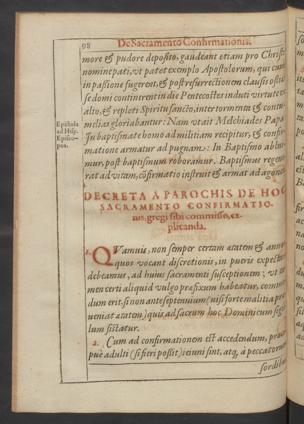 98
De Sacramento Confirmationis.
more & pudore deposito, gaudeant etiam pro Christi
nomine pati, vt patet exemplo Apostolorum, qui cum
in passione fugerent, & post resurrectionem clausis ostijs
se domi continerent: in die Pentecostes induti virtute ex
alto, & repleti Spiritu sancto, inter tormenta & contu-
melias gloriabantur: Nam vt ait Melchiades Papa
Epistola
ad Hisp.
Episco-
pos.
In baptismate homo ad militiam recipitur, & confir-
matione armatur ad pugnam: In Baptismo ablui-
mur, post baptismum roboramur. Baptismus regene-
rat ad vitam, cõfirmatio instruit & armat ad agonẽ.
DECRETA A PAROCHIS DE HOC
SACRAMENTO CONFIRMATIO-
nis, gregi sibi commisso, ex-
plicanda.
1. QVamuis, non semper certam ætatem & annos
quos vocant discretionis, in pueris expectare
debeamus, ad huius sacramenti susceptionem; vt ta-
men certi aliquid vulgo præfixum habeatur, commo-
dum erit, si non ante septennium (nisi forte malitia præ-
ueniat ætatem) quis ad sacrum hoc Dominicum sigil-
lum sistatur.
2. Cum ad confirmationem est accedendum, præci-
puè adulti (si fieri possit) ieiuni sint, atq, à peccatorum
sordibus